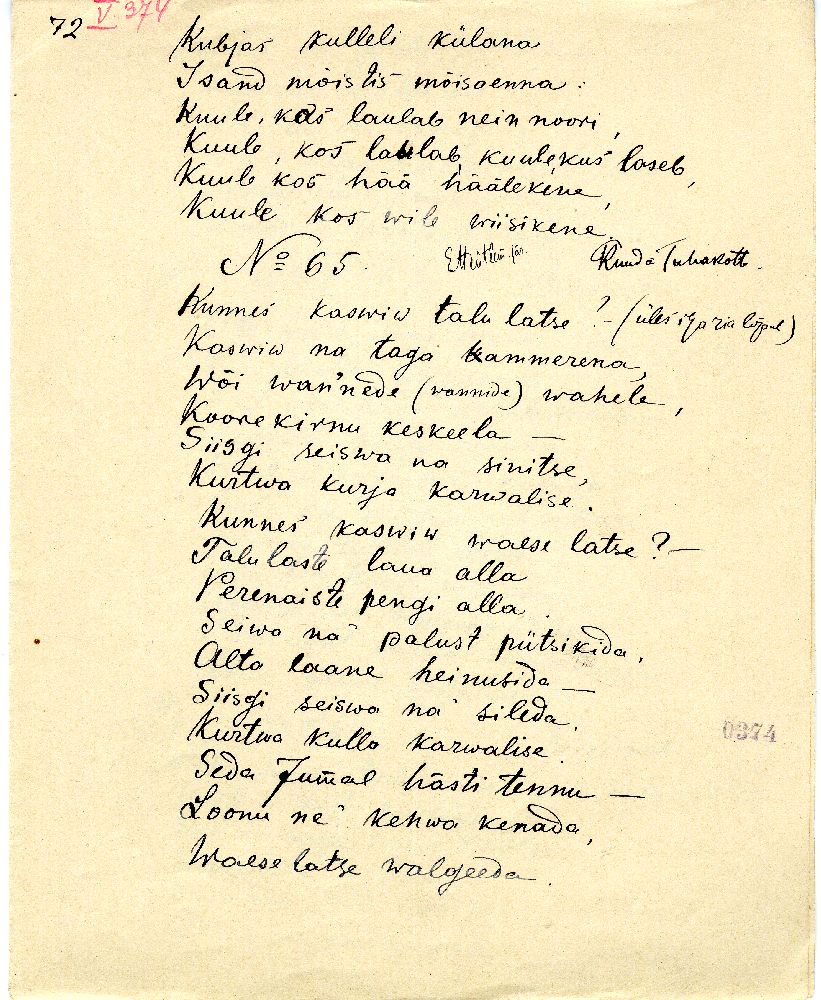 72 V. 374
Kubjas kulleli külana
Isand mõistis mõisaenna:
Kuule, kos laulab nein noori,
Kuule, kos laulab, kuule, kus laseb,
Kuule kos hää häälekene,
Kuule kos wile wiisikene.
№ 65. Ruuda Tuhakott.
Kunnes kaswiw talu latse? –
Kaswiw na taga kammerena,
Wõi wan'nede (wannide) wahele,
Koorekirnu keskeela —
Siisgi seiswa na sinitse,
Kurtwa kurja karwalise.
Kunnes kaswiw waese latse? —
Talu laste laua alla
Perenaiste pengi alla.
Seiwa na' palust pütsikida,
Alta laane heinusida —
Siisgi seiswa na' sileda,
Kurtwa kulla karwalise.
Seda Jumal hästi tennu —
Loonu ne' kehwa kenada,
Waese latse walgeeda.
0374